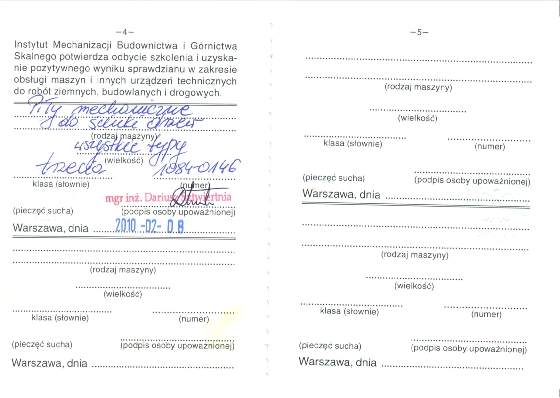 -4-
Instytut Mechanizacji Budownictwa i Górnictwa
Skalnego potwierdza odbycie szkolenia i uzyska-
nie pozytywnego wyniku sprawdzianu w zakresie
obsługi maszyn i innych urządzeń technicznych
do robót ziemnych, budowlanych i drogowych.
Piły mechaniczne
do ścinki drzew
(rodzaj maszyny)
wszystkie typy
(wielkość)
trzecia 1984-0146
klasa (słownie) (numer)
mgr inż. Dariusz
(pieczęć sucha) (podpis osoby upoważnionej)
Warszawa, dnia 2010 -02- 08
(rodzaj maszyny)
(wielkość)
klasa (słownie) (numer)
(pieczęć sucha) (podpis osoby upoważnionej)
Warszawa, dnia
-5-
(rodzaj maszyny)
(wielkość)
klasa (słownie) (numer)
(pieczęć sucha) (podpis osoby upoważnionej)
Warszawa, dnia
(rodzaj maszyny)
(wielkość)
klasa (słownie) (numer)
(pieczęć sucha) (podpis osoby upoważnionej)
Warszawa, dnia